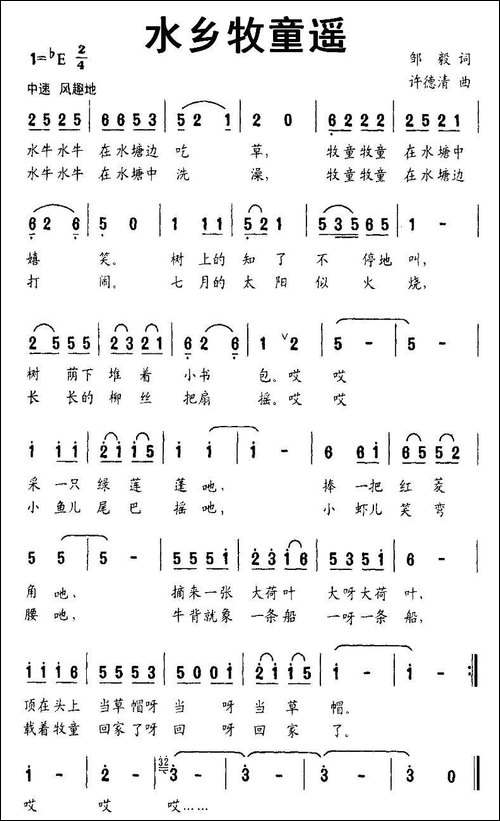 水乡牧童遥
1=♭E 2/4
邹毅 词
中速 风趣地
许德清 曲
2525 | 6653 | 52 1 | 2 0 | 6222 | 2521 |
水牛水牛 在水塘边 吃 草, 牧童牧童 在水塘中
水牛水牛 在水塘中 洗 澡, 牧童牧童 在水塘边
62 6 | 5 0 | 1 11 | 521 | 5 53565 | 1 - |
嬉 笑。 树 上的 知 了 不 停地 叫,
打 闹。 七 月的 太 阳 似 火 烧,
2 555 | 2321 | 62 6 | 1 ∨2 | 5 - | 5 - |
树 荫下 堆 着 小 书 包。哎 哎
长 长的 柳 丝 把 扇 摇。哎 哎
1 11 | 2115 | 1 1 | 1 - | 6 61 | 6552 |
采 一只 绿 莲 蓬 吔, 捧 一把 红 菱
小 鱼儿 尾 巴 摇 吔, 小 虾儿 笑 弯
5 5 | 5 - | 5551 | 2316 | 5351 | 6 - |
角 吔, 摘来一张 大荷叶 大呀大荷 叶,
腰 吔, 牛背就象 一条船 一呀一条 船,
1116 | 5553 | 5001 | 2115 | 1 - | 1 - :‖
顶在头上 当草帽呀 当 呀 当 草 帽。
载着牧童 回家了呀 回 呀 回 家 了。
1 - | 2 - | 32 3 - | 3 - | 3 - | 3 0 ‖
哎 哎 哎……